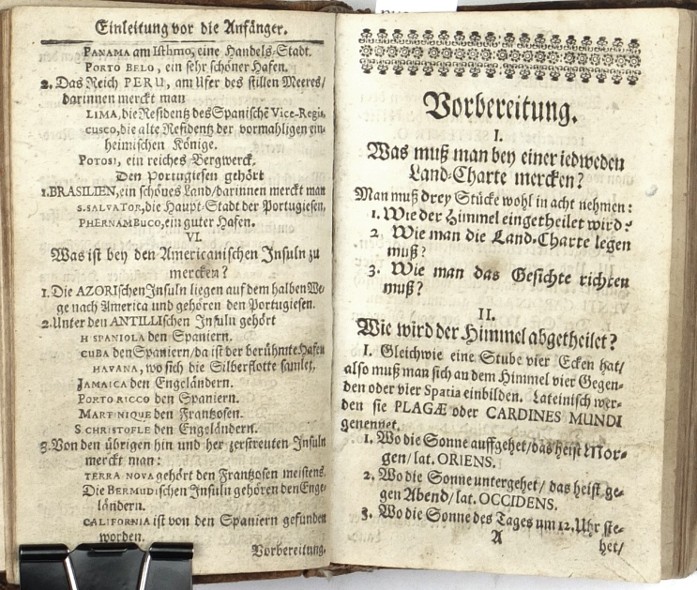 Einleitung vor die Anfänger.
PANAMA am Isthmo, eine Handels-Stadt.
PORTO BELO, ein sehr schöner Hafen.
2. Das Reich PERU, am Ufer des stillen Meeres/
darinnen merckt man
LIMA, die Residentz des Spanische Vice-Regis,
CUSCO, die alte Residentz der vormahligen ein-
heimischen Könige.
POTOSI, ein reiches Bergwerck.
Den Portugiesen gehört
1. BRASILIEN, ein schönes Land/darinnen merckt man
S. SALVATOR, die Haupt-Stadt der Portugiesen,
PHERNAMBUCO, ein guter Hafen.
VI.
Was ist bey den Americanischen Insuln zu
mercken?
1. Die AZORIschen Insuln liegen auf dem halben We-
ge nach America und gehören den Portugiesen.
2. Unter den ANTILLIschen Insuln gehört
HISPANIOLA den Spaniern.
CUBA den Spaniern/da ist der berühmte Hafen
HAVANA, wo sich die Silberflotte samlet,
JAMAICA den Engeländern.
PORTO RICCO den Spaniern.
MARTINIQUE den Frantzosen.
S. CHRISTOFLE den Engeländern.
3. Von den übrigen hin und her zerstreuten Insuln
merckt man:
TERRA NOVA gehört den Frantzosen meistens.
Die BERMUDischen Insuln gehören den Enge-
ländern.
CALIFORNIA ist von den Spaniern gefunden
worden.
Vorbereitung.
Vorbereitung.
I.
Was muß man bey einer iedweden
Land-Charte mercken?
Man muß drey Stücke wohl in acht nehmen:
1. Wie der Himmel eingetheilet wird?
2. Wie man die Land-Charte legen
muß?
3. Wie man das Gesichte richten
muß?
II.
Wie wird der Himmel abgetheilet?
I. Gleichwie eine Stube vier Ecken hat/
also muß man sich an dem Himmel vier Gegen-
den oder vier Spatia einbilden. Lateinisch wer-
den sie PLAGÆ oder CARDINES MUNDI
genennet.
1. Wo die Sonne auffgehet/das heist Mor-
gen/lat. ORIENS.
2. Wo die Sonne untergehet/ das heist ge-
gen Abend/lat. OCCIDENS.
3. Wo die Sonne des Tages um 12. Uhr ste-
A
het/